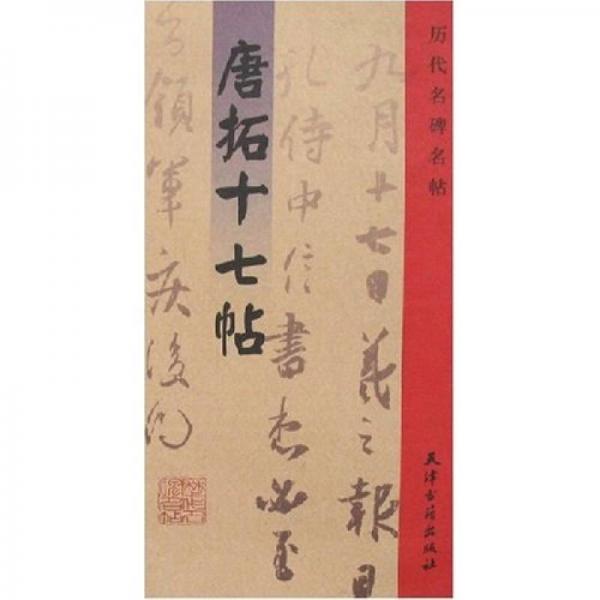 历代名碑名帖
天津古籍出版社
九月十七日羲之報且
孔侍中信書想必至
唐拓十七帖
領軍疾後問